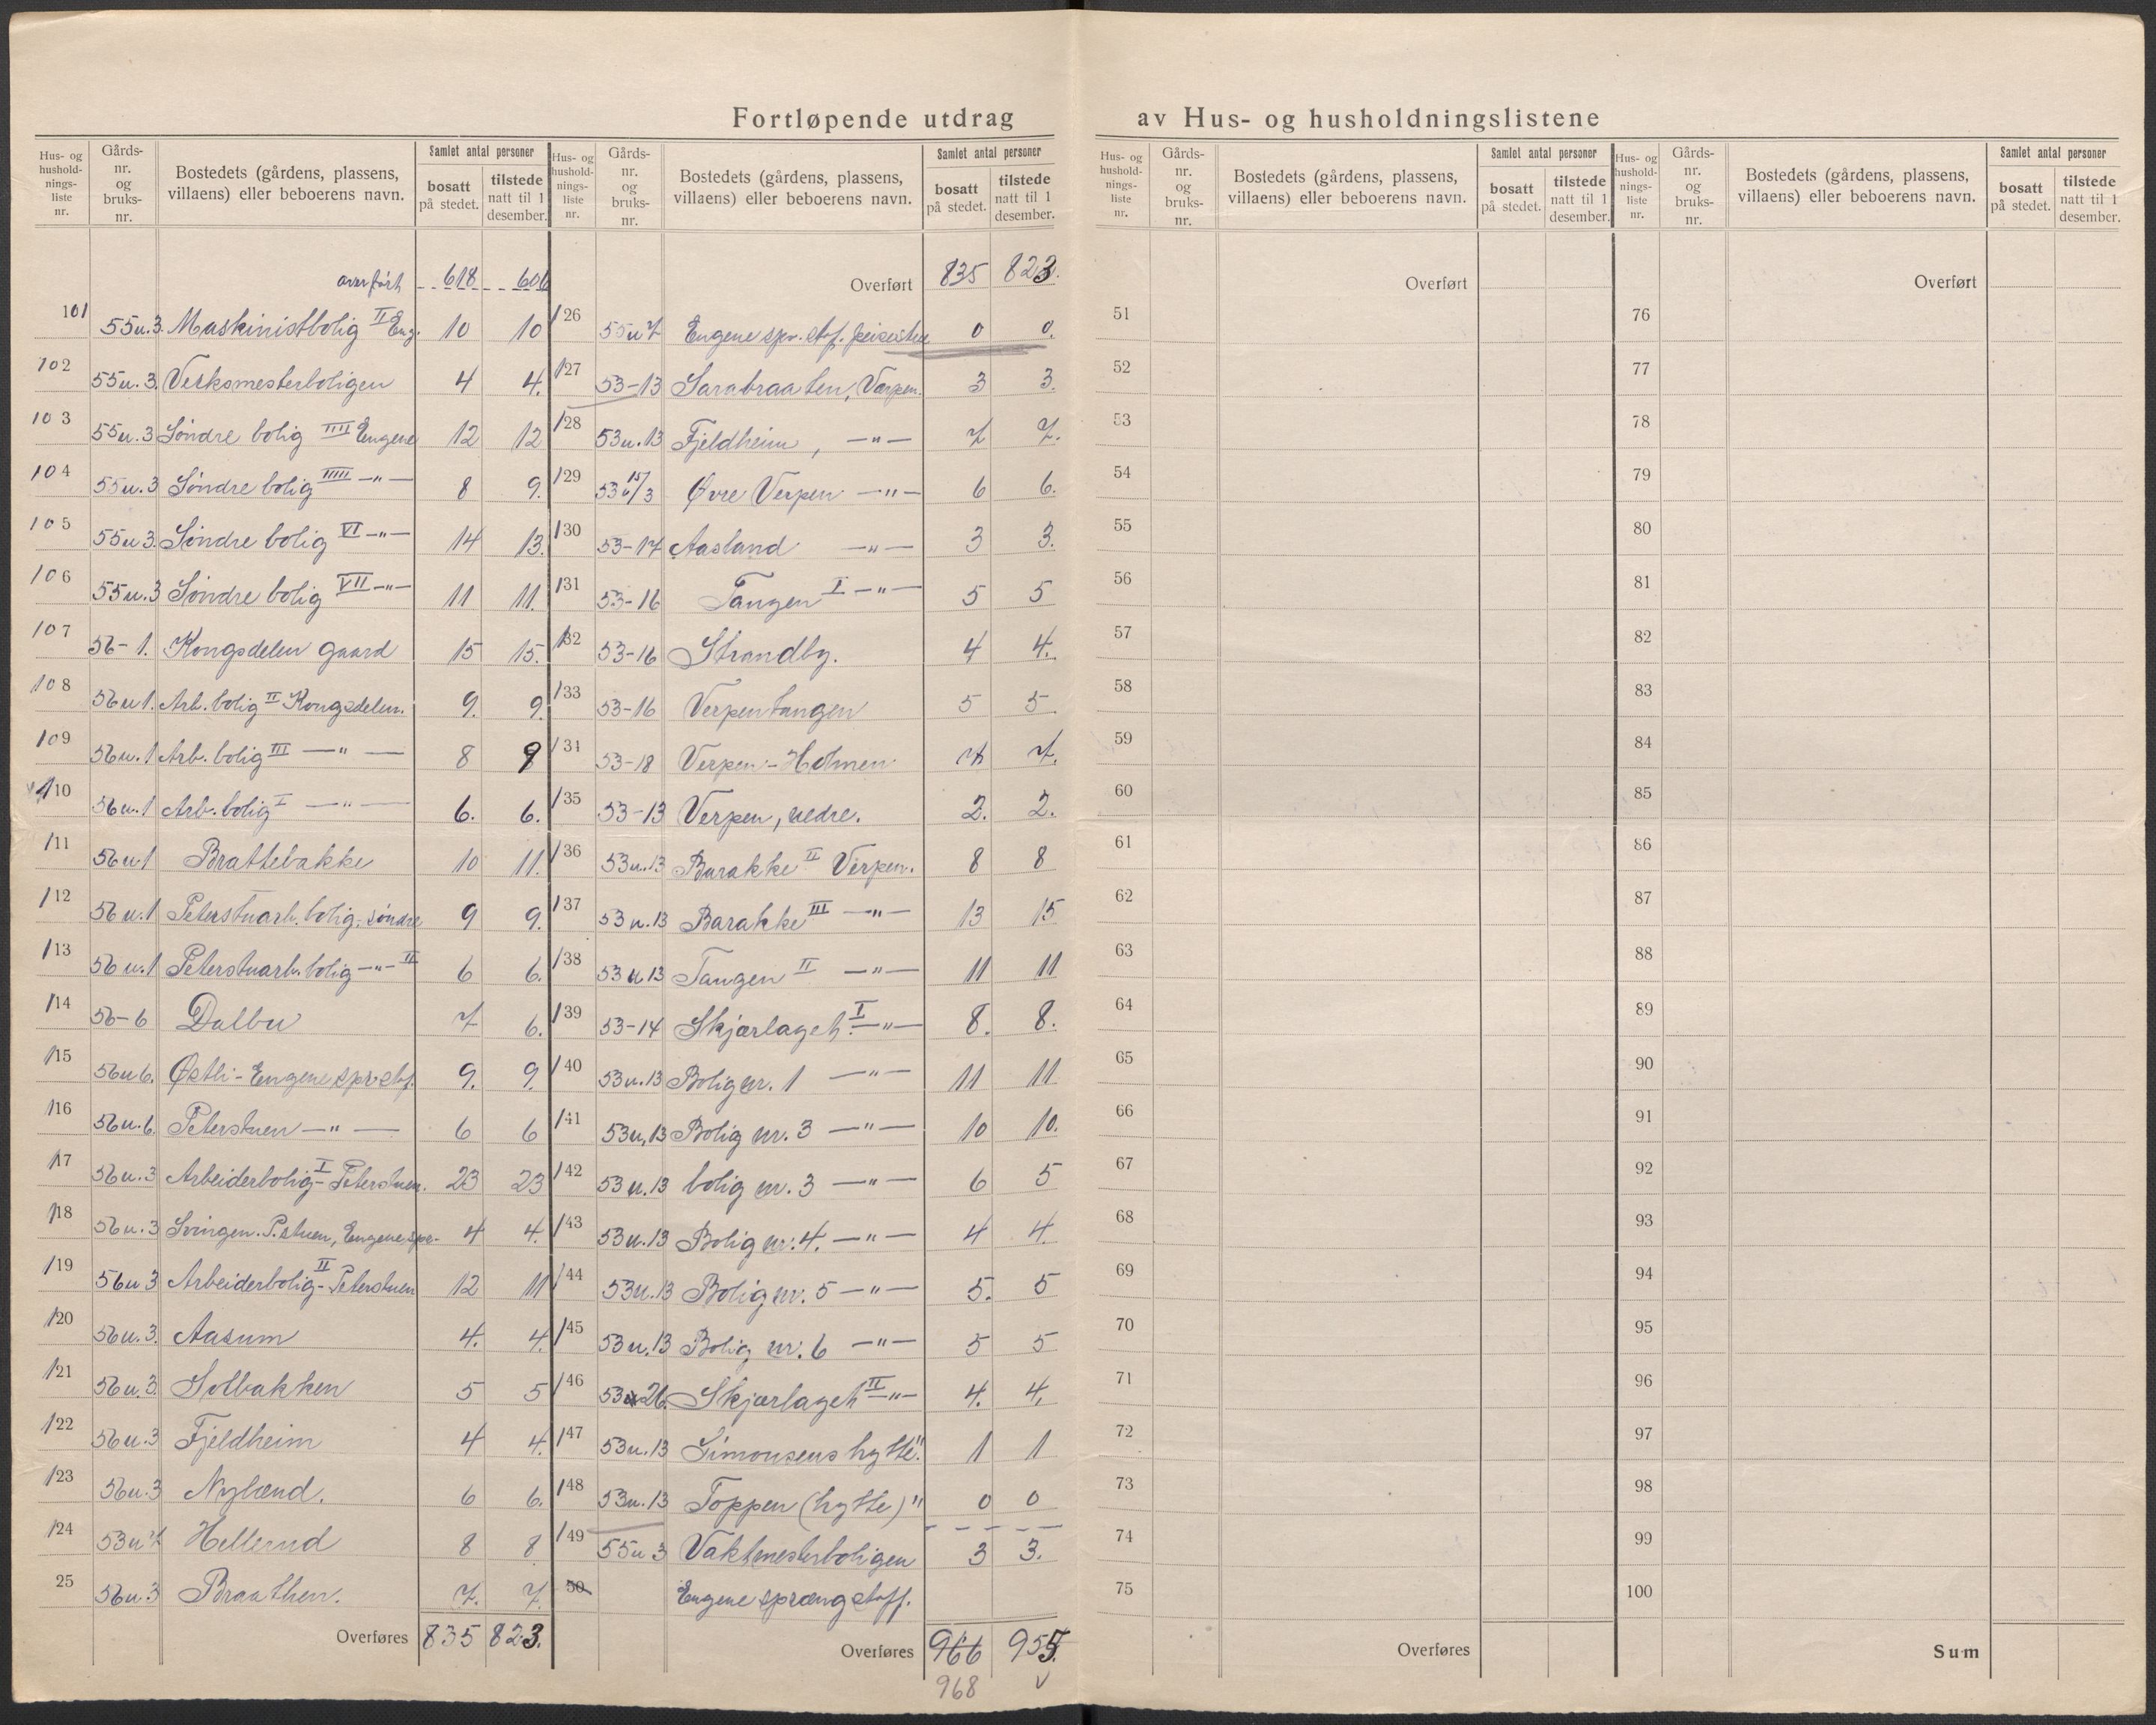 Fortløpende utdrag av Hus- og husholdningslistene
Hus- og hushold-nings-liste nr. Gårds-nr. og bruks-nr. Bostedets (gårdens, plassens, villaens) eller beboerens navn. Samlet antal personer bosatt på stedet. tilstede natt til 1 desember.
overført 618 606
101 55u.3. Maskinistbolig II Eng. 10 10
102 55u.3. Verksmesterboligen 4 4.
103 55u.3 Søndre bolig IIII Engene 12 12
104 55u.3 Søndre bolig IIIII —"— 8 9.
105 55u3. Søndre bolig VI —"— 14 13.
106 55u.3 Søndre bolig VII —"— 11 11.
107 56-1. Kongsdelen gaard 15 15.
108 56u1. Arb. bolig II Kongsdelen. 9. 9.
109 56u.1 Arb. bolig III —"— 8 9
110 56u.1 Arb. bolig I —"— 6. 6.
111 56u1 Brattebakke 10 11.
112 56u.1 Peterstuarb. bolig, søndre 9 9.
113 56u.1 Peterstuarb. bolig —"— II 6 6.
114 56-6 Dalbu 7 6.
115 56u6. Østli - Engene spr.stof. 9. 9.
116 56u.6. Peterstuen —"— 6 6
117 56u.3 Arbeiderbolig I - Peterstuen. 23 23
118 56u.3 Svingen. P.stuen, Engene spr. 4 4.
119 56u3 Arbeiderbolig II - Peterstuen 12 11
120 56u.3. Aasum 4. 4.
121 56u.3. Solbakken 5 5
122 56u.3 Fjeldheim 4 4.
123 56u.3 Nylænd. 6 6.
124 53u7 Hellerud 8 8
25 56u.3 Braathen. 7. 7.
Overføres 835 823.
Hus- og hushold-nings-liste nr. Gårds-nr. og bruks-nr. Bostedets (gårdens, plassens, villaens) eller beboerens navn. Samlet antal personer bosatt på stedet. tilstede natt til 1 desember.
Overført 835 823.
126 55u7 Engene spr. stof. 0 0.
127 53-13 Sarabraaten, Verpen. 3 3.
128 53u.13 Fjeldheim, —"— 7 7.
129 53 15/3 Øvre Verpen —"— 6 6.
130 53-17 Aasland —"— 3 3.
131 53-16 Tangen I —"— 5 5
132 53-16 Strandby. 4 4.
133 53-16 Verpentangen 5 5
134 53-18 Verpen-Holmen 7 7.
135 53-13 Verpen, nedre. 2. 2.
136 53u.13 Barakke II Verpen. 8 8
137 53u.13 Barakke III —"— 13 15
138 53u13 Tangen II —"— 11 11
139 53-14 Skjærlaget I. —"— 8. 8.
140 53u.13 Bolig nr. 1 —"— 11 11
141 53u,13 Bolig nr. 3 —"— 10 10.
142 53u.13 bolig nr. 3 —"— 6 5
143 53u.13 Bolig nr: 4. —"— 4 4.
144 53u.13 Bolig nr. 5 —"— 5. 5
145 53u.13 Bolig nr. 6 —"— 5 5
146 53-26. Skjærlaget II —"— 4. 4.
147 53u.13 Simonsens hytte." 1 1
148 53u.13 Toppen (hytte) " 0 0
149 55u3 Vaktmesterboligen 3 3.
50 Engene sprængstoff.
Overføres 966 955.
968 v
Hus- og hushold-nings-liste nr. Gårds-nr. og bruks-nr. Bostedets (gårdens, plassens, villaens) eller beboerens navn. Samlet antal personer bosatt på stedet. tilstede natt til 1 desember.
Overført
51
52
53
54
55
56
57
58
59
60
61
62
63
64
65
66
67
68
69
70
71
72
73
74
75
Overføres
Hus- og hushold-nings-liste nr. Gårds-nr. og bruks-nr. Bostedets (gårdens, plassens, villaens) eller beboerens navn. Samlet antal personer bosatt på stedet. tilstede natt til 1 desember.
Overført
76
77
78
79
80
81
82
83
84
85
86
87
88
89
90
91
92
93
94
95
96
97
98
99
100
Sum